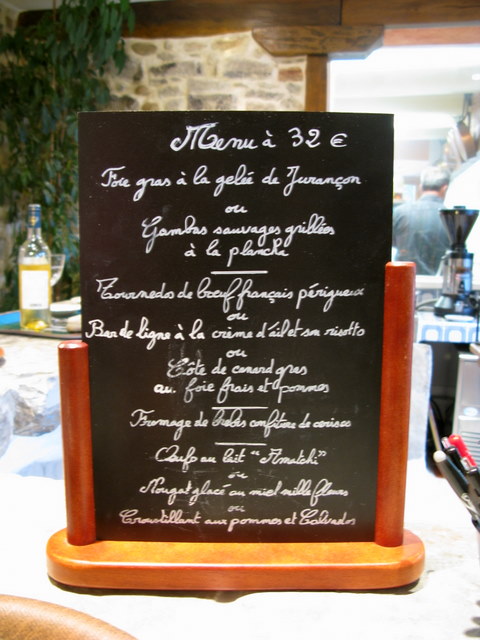 Menu à 32 €
Foie gras à la gelée de Jurançon
ou
Gambas sauvages grillées
à la plancha
Tournedos de bœuf français périgueux
ou
Bar de ligne à la crème d'ail et son risotto
ou
Côte de canard gras
au foie frais et pommes
Fromage de brebis confiture de cerises
Oeufs au lait "Amatchi"
ou
Nougat glacé au miel mille fleurs
ou
Croustillant aux pommes et Calvados